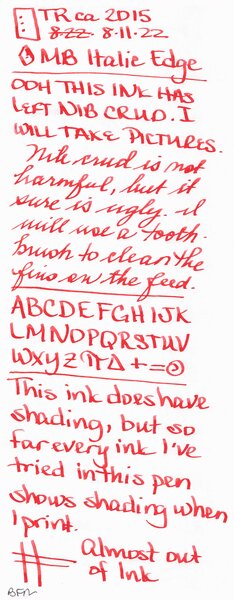 TR ca 2015
8-22 8-11-22
MB Italic Edge
OOH THIS INK HAS
LEFT NIB CRUD. I
WILL TAKE PICTURES.
Nib crud is not
harmful, but it
sure is ugly. I
will use a tooth-
brush to clean the
fins on the feed.
ABCDEFGHIJK
LMNOPQRSTUV
WXYZ π Δ + =
This ink does have
shading, but so
far every ink I've
tried in this pen
shows shading when
I print.
Almost out
of Ink